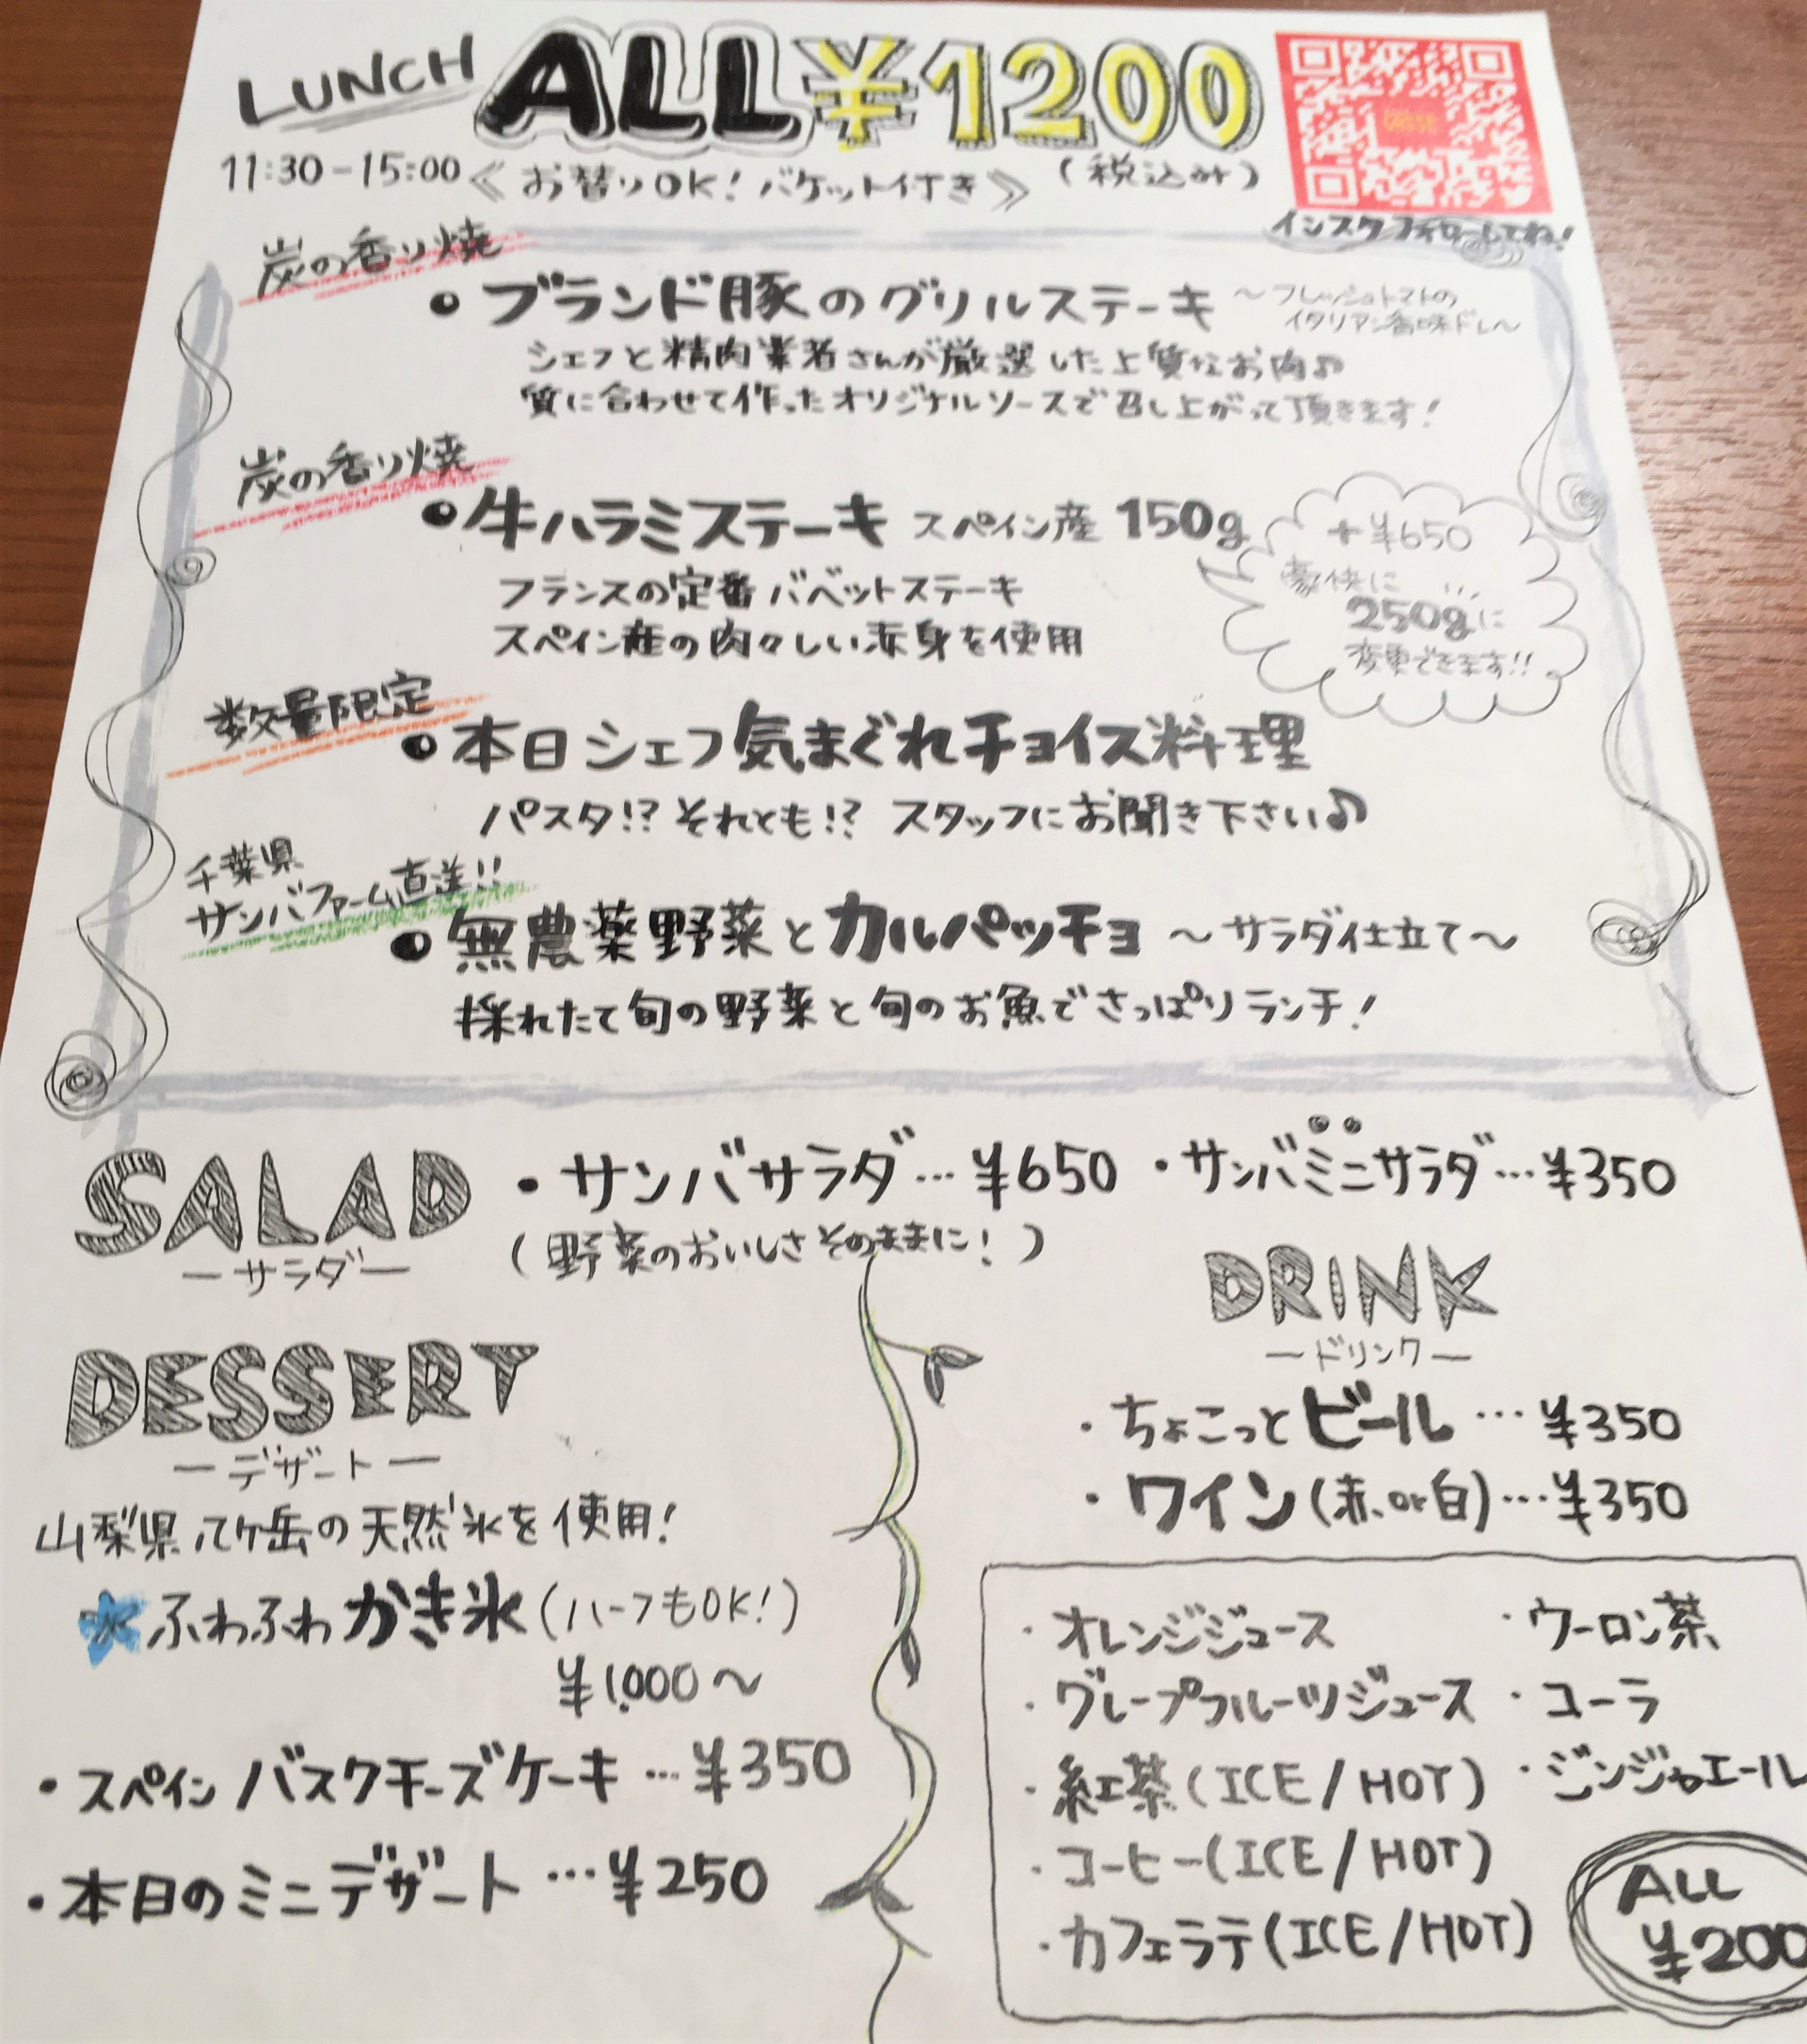 LUNCH ALL ¥1200
11:30-15:00 《お替りOK!バケット付き》 (税込み)
インスタフォローしてね!
炭の香り焼
• ブランド豚のグリルステーキ ～フレッシュトマトの
イタリアン香味ドレ～
シェフと精肉業者さんが厳選した上質なお肉♪
質に合わせて作ったオリジナルソースで召し上がって頂きます!
炭の香り焼
• 牛ハラミステーキ スペイン産 150g
フランスの定番 バベットステーキ
スペイン産の肉々しい赤身を使用
+¥650
豪快に...
250gに
変更できます!!
数量限定
• 本日シェフ気まぐれチョイス料理
パスタ!? それとも!? スタッフにお聞き下さい♪
千葉県
サンバファーム直送!!
• 無農薬野菜とカルパッチョ ～サラダ仕立て～
採れたて旬の野菜と旬のお魚でさっぱりランチ!
SALAD
－サラダ－
• サンバサラダ…¥650 ・サンバミニサラダ…¥350
(野菜のおいしさそのままに!)
DESSERT
－デザート－
山梨県八ケ岳の天然氷を使用!
ふわふわかき氷(ハーフもOK!)
¥1,000～
・スペインバスクチーズケーキ…¥350
・本日のミニデザート…¥250
DRINK
－ドリンク－
・ちょこっとビール…¥350
・ワイン(赤or白)…¥350
・オレンジジュース ・ウーロン茶
・グレープフルーツジュース ・コーラ
・紅茶(ICE/HOT) ・ジンジャエール
・コーヒー(ICE/HOT)
・カフェラテ(ICE/HOT)
ALL
¥200